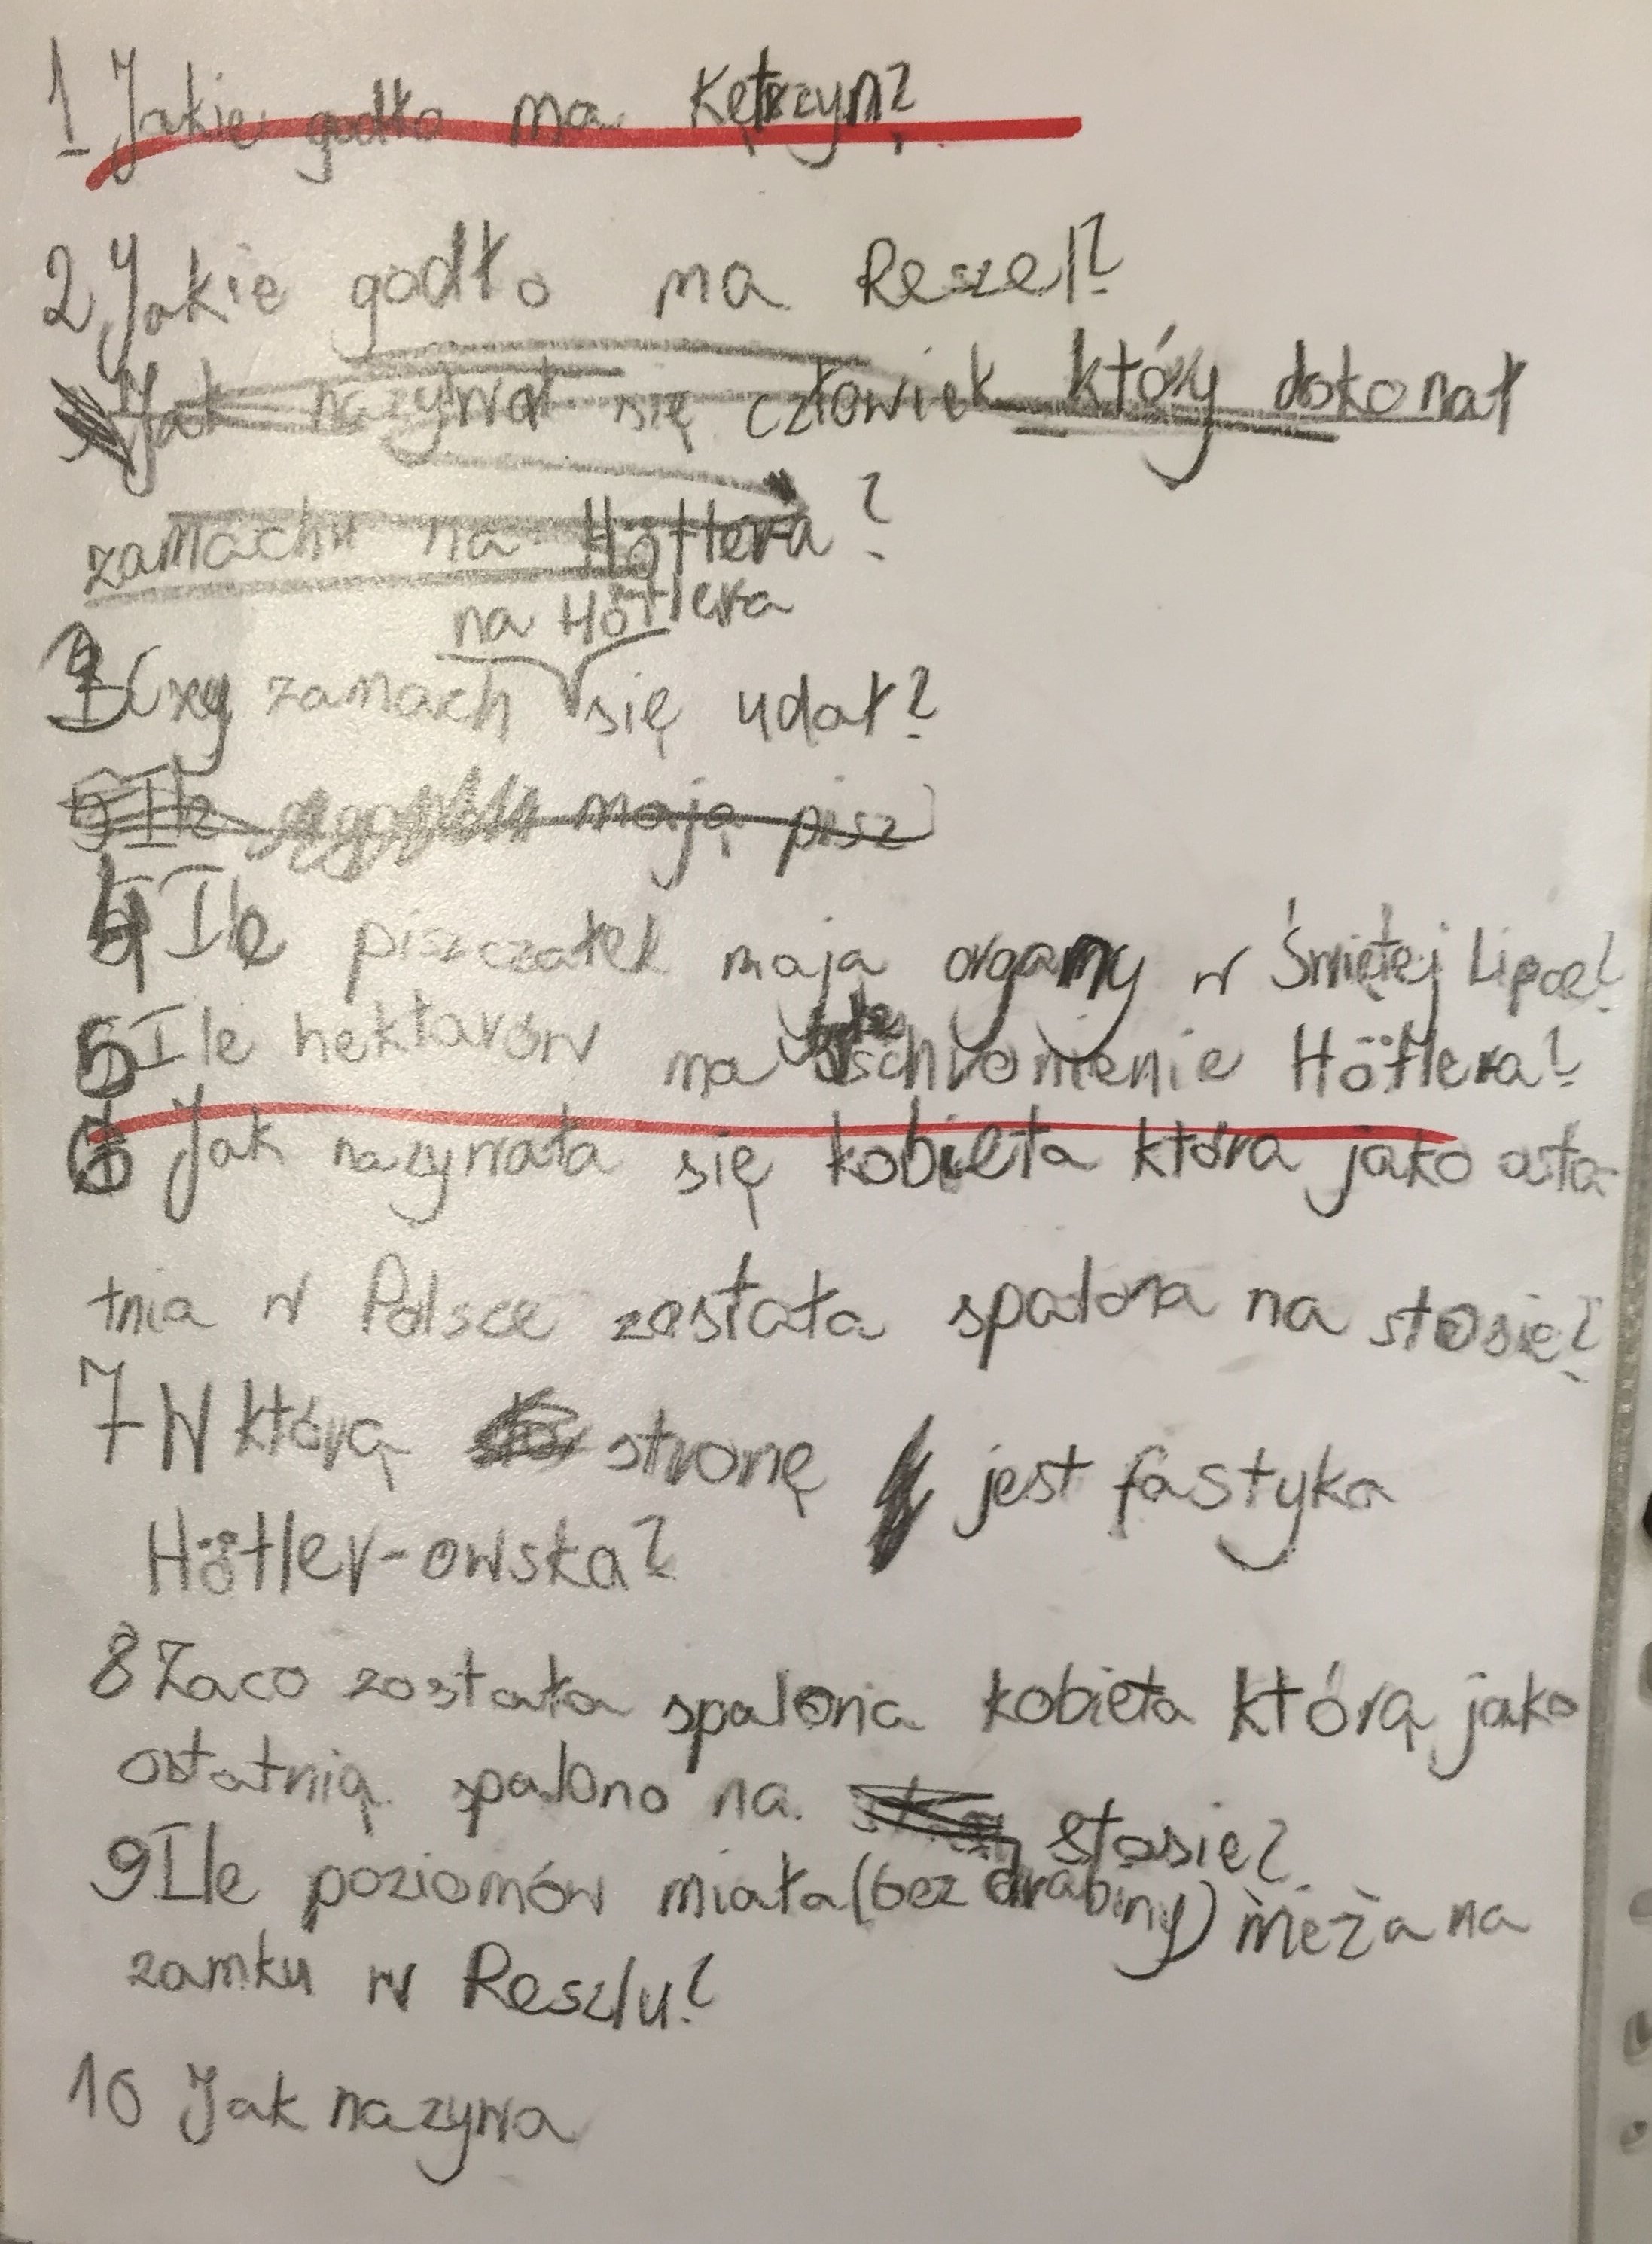 1 Jakie godło ma Kętrzyn?
2 Jakie godło ma Reszel?
Jak nazywał się człowiek który dokonał
zamachu na Hötlera?
na Hötlera
3 Czy zamach się udał?
Ile mają pisz
4 Ile piszczałek mają organy w Świętej Lipce?
5 Ile hektarów ma schronienie Hötlera?
6 Jak nazywała się kobieta która jako osta-
tnia w Polsce została spalona na stosie?
7 W którą stronę jest fastyka
Hötler-owska?
8 Zaco została spalona kobieta którą jako
ostatnią spalono na stosie?
9 Ile poziomów miała (bez drabiny) wieża na
zamku w Reszlu?
10 Jak nazywa